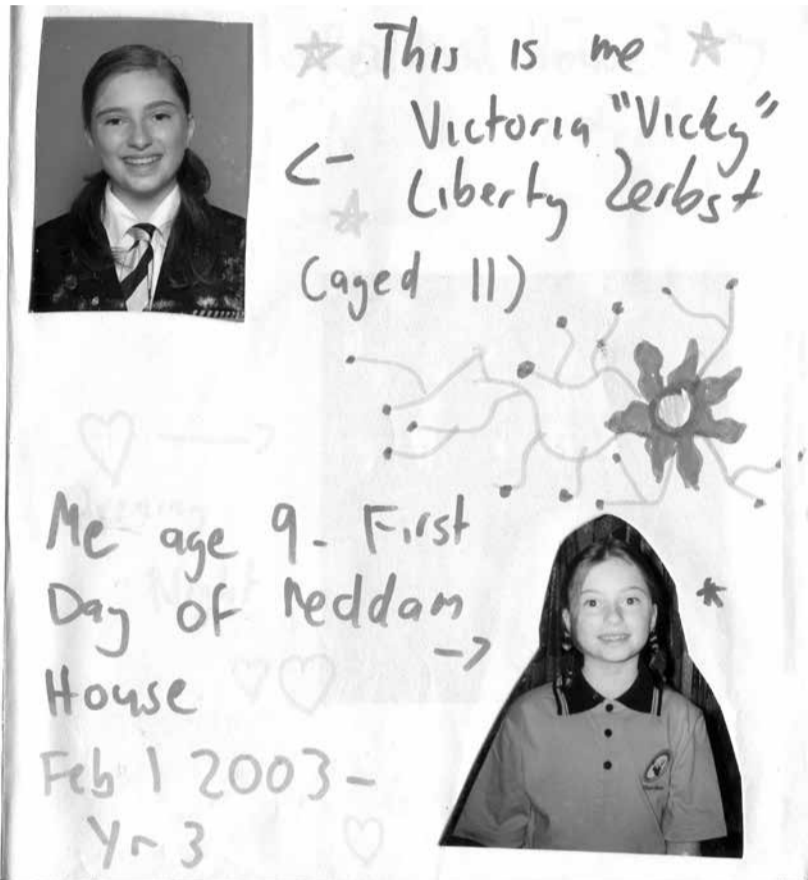 This is me
Victoria "Vicky"
<-
Liberty Zerbst
(aged 11)
Me age 9- First
Day of Reddam
->
House
Feb 1 2003-
Yr 3